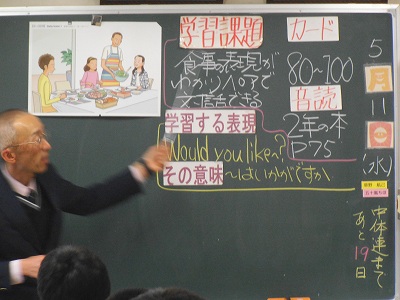 学習課題
食事の表現が
わかり、ペアで
文話できる
カード
80〜100
音読
2年の本
P75
学習する表現
Would you like〜?
その意味
〜はいかがですか
5
月
11
日
(水)
中体連まで
あと19日